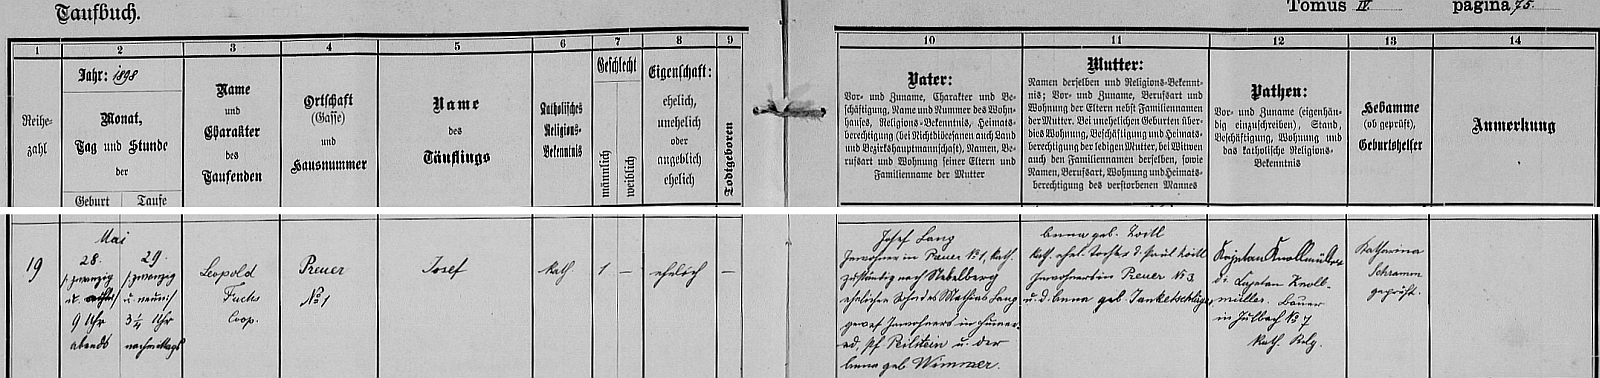 Taufbuch.
Tomus IV. pagina 75.
1 2 3 4 5 6 7 8 9
Reihe-
zahl
Jahr: 1898
Monat,
Tag und Stunde
der
Geburt Taufe
Name
und
Charakter
des
Taufenden
Ortschaft
(Gasse)
und
Hausnummer
Name
des
Täuflings
Katholisches
Religions-
Bekenntnis
Geschlecht
männlich
weiblich
Eigenschaft:
ehelich,
unehelich
oder
angeblich
ehelich
Todtgeboren
10 11 12 13 14
Vater:
Vor- und Zuname, Charakter und Be-
schäftigung, Name und Nummer des Wohn-
hauses, Religions-Bekenntnis, Heimats-
berechtigung (bei Nichtdiöcesanen auch Land
und Bezirkshauptmannschaft), Namen, Be-
rufsart und Wohnung seiner Eltern und
Familienname der Mutter
Mutter:
Namen derselben und Religions-Bekennt-
nis; Vor- und Zuname, Berufsart und
Wohnung der Eltern nebst Familiennamen
der Mutter. Bei unehelichen Geburten über-
dies Wohnung, Beschäftigung und Heimats-
berechtigung der ledigen Mutter, bei Witwen
auch den Familiennamen derselben, sowie
Namen, Berufsart, Wohnung und Heimats-
berechtigung des verstorbenen Mannes
Pathen:
Vor- und Zuname (eigenhän-
dig einzuschreiben), Stand,
Beschäftigung, Wohnung und
das katholische Religions-
Bekenntnis
Hebamme
(ob geprüft),
Geburtshelfer
Anmerkung
19
Mai
28.
/: zwanzig
u. achte :/
9 Uhr
abends
29.
/: zwanzig
u. neun :/
3 1/4 Uhr
nachmittags
Leopold
Fuchs
Coop.
Preuer
No 1
Josef
kath
1 —
ehelich
—
Josef Lang
Inwohner in Preuer No 1, kath.
zuständig nach Nebelberg
ehelicher Sohn des Mathias Lang
gewes Inwohners in
Pf Peilstein u. der
Anna geb Wimmer.
Anna geb. Zoitl
kath. ehel. Tochter d. Paul Zoitl
Inwohners in Preuer No 3
u. d. Anna geb Janketschläger
Kajetan Knollmüller
di. Cajetan Knoll-
müller. Bauer
in Julbach No 7
kath. Relg.
Katharina
Schramm
geprüft.